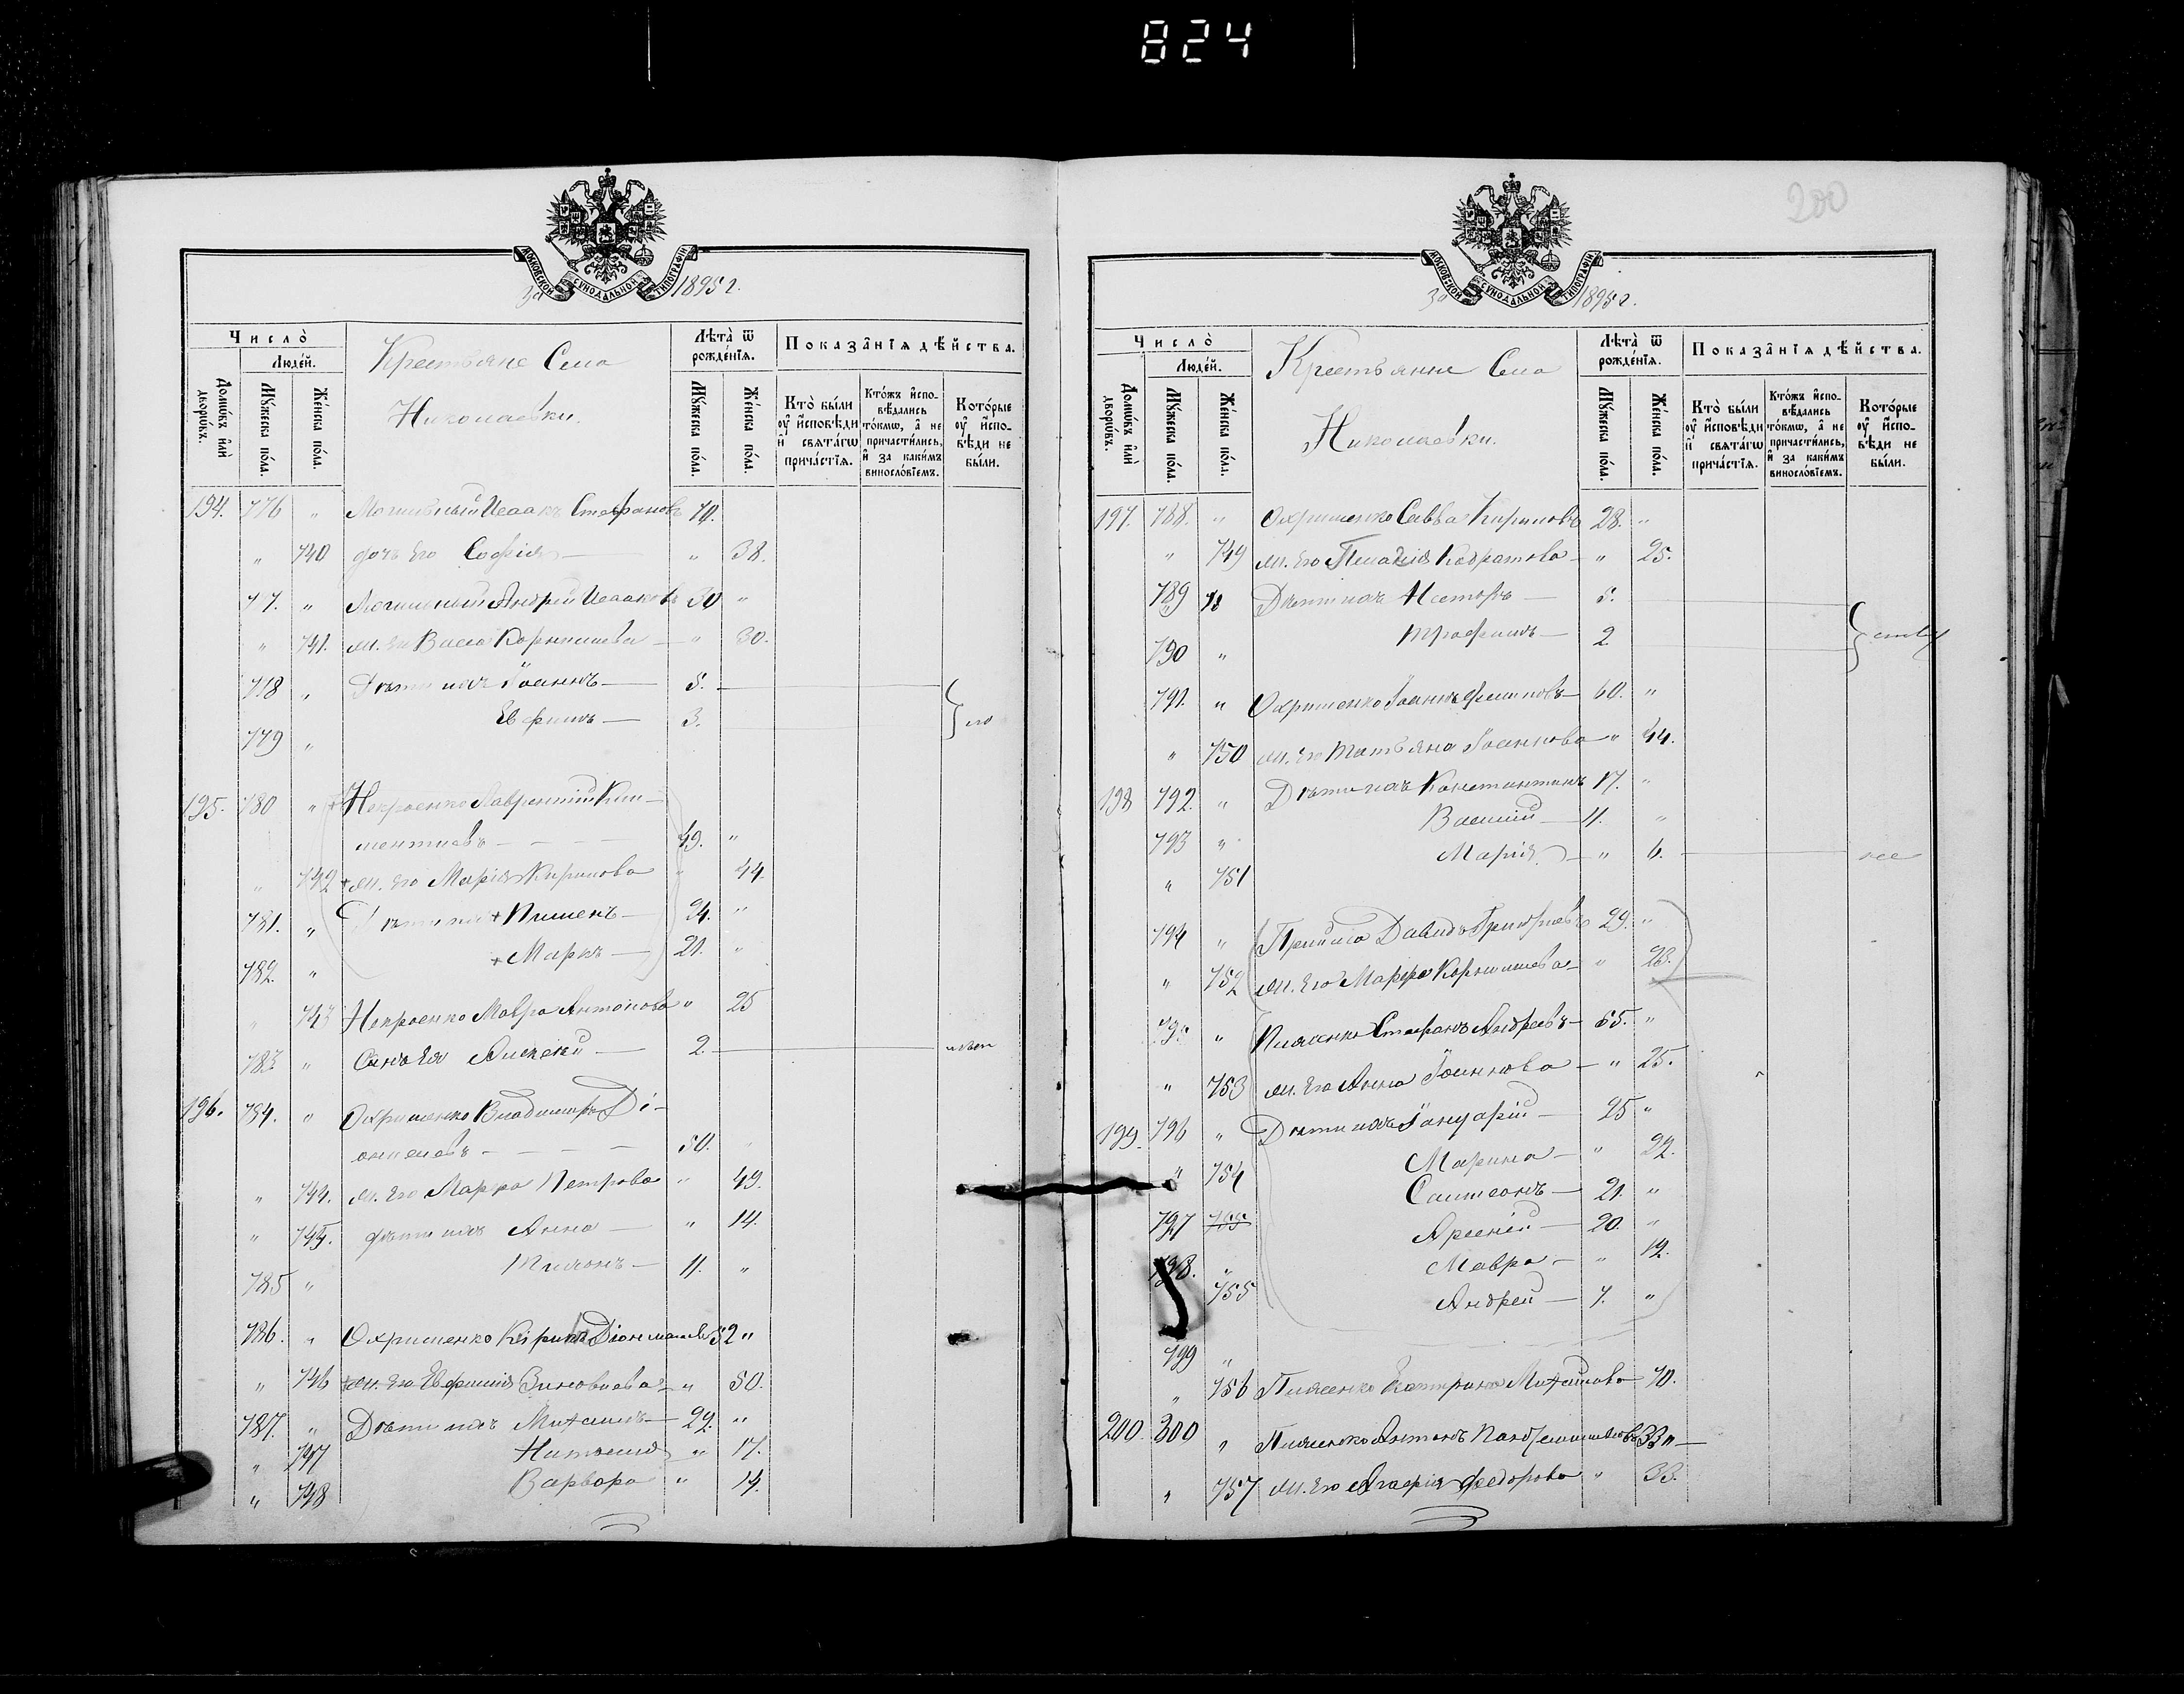 824
МОСКОВСКОЙ СУНОДАЛЬНОЙ ТИПОГРАФІИ
За 1895 г.
Число̀
Людей.
Домѡвъ и҆лѝ дворѡ́въ.
Мꙋ́жеска по́ла.
Же́нска по́ла.
Крестьяне Села
Николаевки.
Лѣта̀ ѿ рожде́нїѧ.
Мꙋ́жеска по́ла.
Же́нска по́ла.
Показа̂нїѧ дѣ́йства.
Кто̀ бы́ли оу҆ и҆сповѣди и҆ свѧта́гѡ прича́стїѧ.
Кто́жъ и҆спо-вѣдались то́кмѡ, а҆ не причасти́лись, и҆ за каки́мъ винословїемъ.
Кото́рые оу҆ и҆спо-вѣди не бы́ли.
194. 776 " Исаакъ Стефановъ 70.
" 740 дочь его Софія — " 38.
777. " Андрей Исааковъ 30 "
" 741. ж. его Васса Корнилиева — " 30.
778 " Дѣти ихъ Іоаннъ — 5.
779 " Евфимъ — 3.
195. 780 " Некраенко Лаврентій Кли-
ментиевъ - - - - 49. "
" 742 + ж. его Марія Кирилова " 44.
781. " Дѣти ихъ + Пименъ — 24. "
782. " + Маркъ — 21. "
" 743 Некраенко Мавра Антонова " 25
783 " Сынъ ея Алексій — 2.
196. 784. " Охрименко Владимиръ Ді-
онисіевъ - - - - 50. "
" 744. ж. его Марфа Петрова " 49.
" 745. дѣти ихъ Анна — " 14.
785 " 11. "
786. " Охрименко Кирилъ 52 "
" 746 + ж. его Евфимія Зиновиева — " 50.
787. " Дѣти ихъ Михаилъ — 22. "
" 747 Наталія " 17.
" 748 Варвара " 14.
200
МОСКОВСКОЙ СУНОДАЛЬНОЙ ТИПОГРАФІИ
За 1895 г.
Число̀
Людей.
Домѡвъ и҆лѝ дворѡ́въ.
Мꙋ́жеска по́ла.
Же́нска по́ла.
Крестьянне Села
Николаевки.
Лѣта̀ ѿ рожде́нїѧ.
Мꙋ́жеска по́ла.
Же́нска по́ла.
Показа̂нїѧ дѣ́йства.
Кто̀ бы́ли оу҆ и҆сповѣди и҆ свѧта́гѡ прича́стїѧ.
Кто́жъ и҆спо-вѣдались то́кмѡ, а҆ не причасти́лись, и҆ за каки́мъ винословїемъ.
Кото́рые оу҆ и҆спо-вѣди не бы́ли.
197. 788. " Охрименко Савва Кириловъ 28. "
" 749 ж. его Пелагія Кодратова — " 25.
789 Дѣти ихъ Несторъ — 5.
790 " Трофимъ — 2
791. " Охрименко Іоаннъ Филиповъ — 60. "
" 750 ж. его Татьяна Іоаннова " 44.
198 792. " Дѣти ихъ Константинъ 17. "
793 " Василій — 11. "
" 751 Марія — " 6.
794 " Давидъ Григориевъ 29. "
" 752 ж. его Марфа Корнилиева — " 28.
795 " Пилипенко Стефанъ Андреевъ — 65. "
" 753 ж. его Анна Іоаннова — " 25.
199. 796 " Дѣти ихъ Іануарій — 25 "
" 754 Марина — " 22.
Сампсонъ — 21. "
797 755 Арсеній — 20. "
798. " Мавра — " 12.
755 Андрей — 7. "
799 "
" 756 Катерина Михайлова 70.
200. 800 " Антонъ 33 "
" 757 ж. его Агафія Федорова " 33.